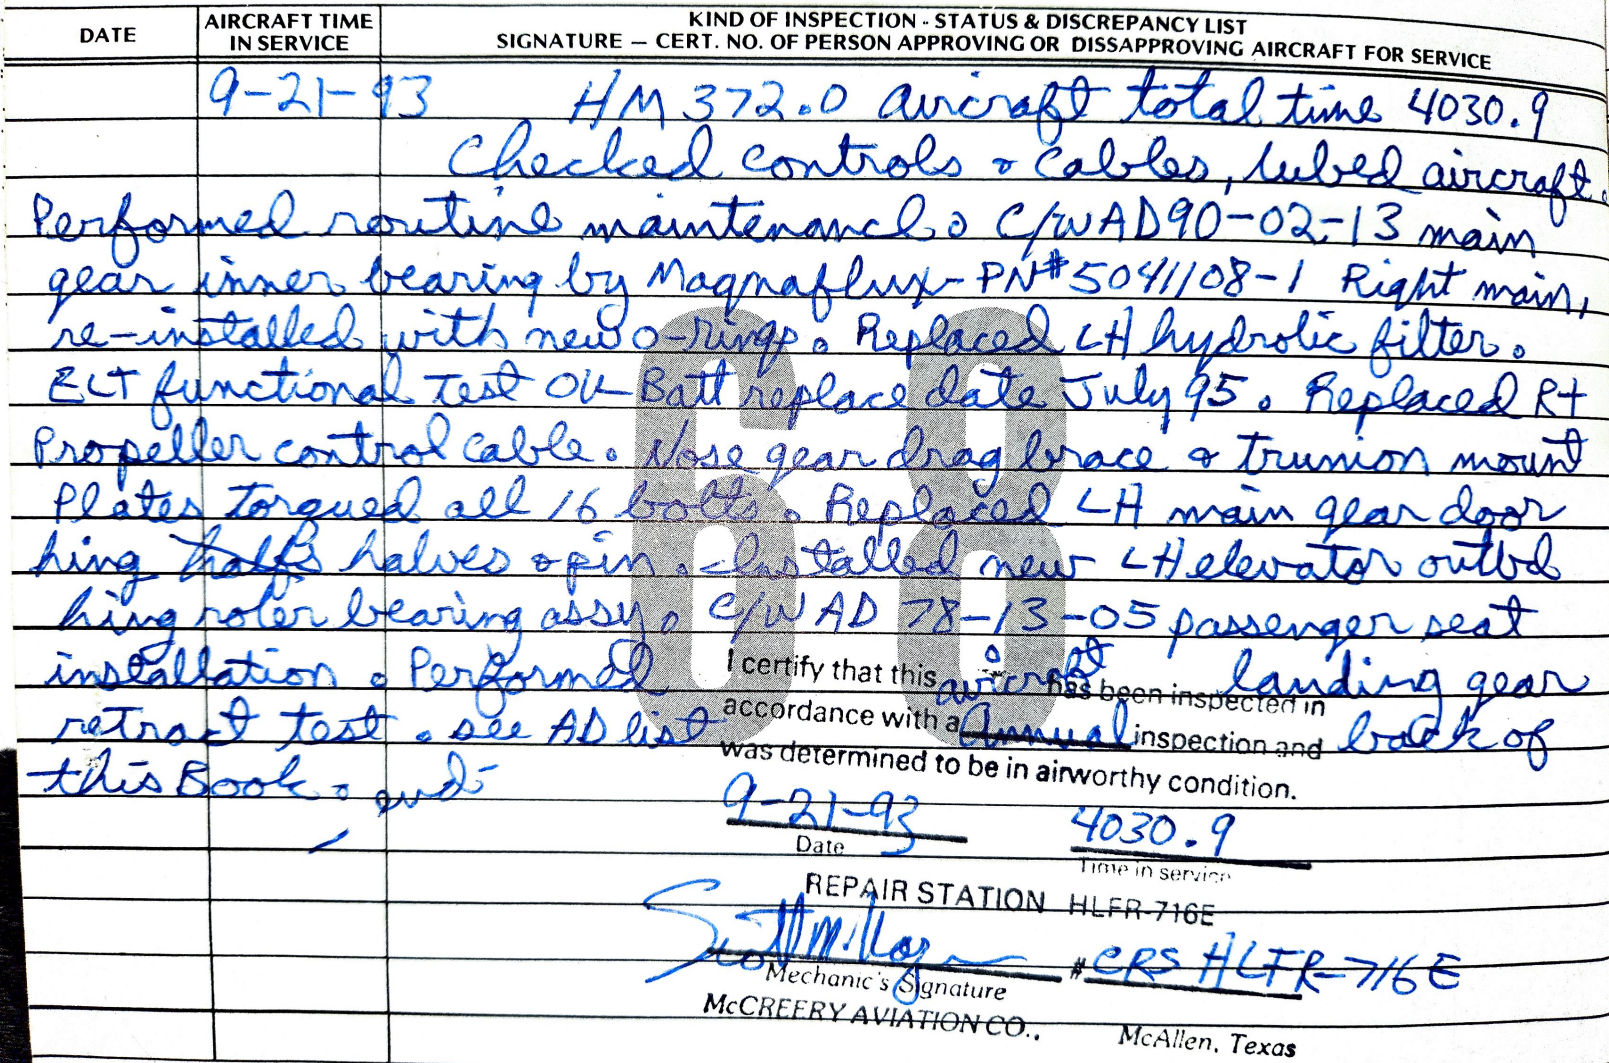 DATE AIRCRAFT TIME IN SERVICE KIND OF INSPECTION - STATUS & DISCREPANCY LIST
SIGNATURE — CERT. NO. OF PERSON APPROVING OR DISSAPPROVING AIRCRAFT FOR SERVICE
9-21-93 HM 372.0 aircraft total time 4030.9
Checked controls & cables, lubed aircraft.
Performed routine maintenance. C/W AD 90-02-13 main
gear inner bearing by Magnaflux- PN# 5041108-1 Right main,
re-installed with new o-rings. Replaced LH hydrolic filter.
ELT functional test OK- Batt replace date July 95. Replaced Rt
Propeller control cable. Nose gear drag brace & trunion mount
Plates torqued all 16 bolts. Replaced LH main gear door
hing halfs halves & pin. Installed new LH elevator outbd
hing roler bearing assy. C/W AD 78-13-05 passenger seat
installation. Performed landing gear
retract test. see AD list back of
this Book. end-
68
I certify that this aircraft has been inspected in
accordance with a Annual inspection and
was determined to be in airworthy condition.
9-21-93 4030.9
Date Time in service
REPAIR STATION HLFR-716E
# CRS HLFR-716E
Mechanic's Signature
McCREERY AVIATION CO., McAllen, Texas